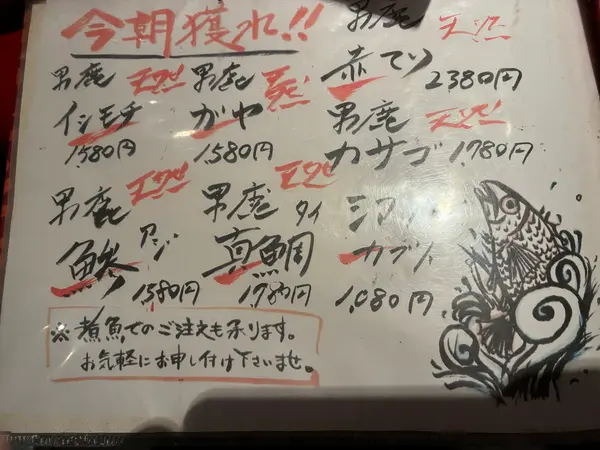 今朝獲れ!!
男鹿
イシモチ
1580円
男鹿
ガヤ
1580円
男鹿
赤てり
2380円
男鹿
カサゴ 1780円
男鹿
鯵 アジ
1580円
男鹿
真鯛 タイ
1780円
1,080円
※煮魚でのご注文も承ります。
お気軽にお申し付け下さいませ。